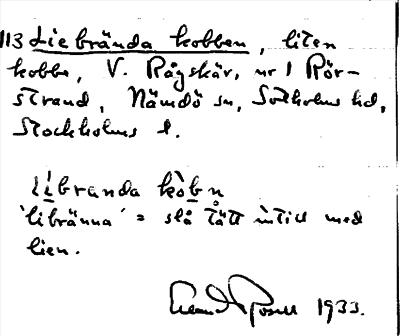 113 Liebrända kobben, liten
kobbe, V. Rågskär, nr 1 Rör-
strand, Nämdö sn, Sotholms hd,
Stockholms l.
libranda kòbn
'libränna' = slå tätt intill med
lien.
1933.